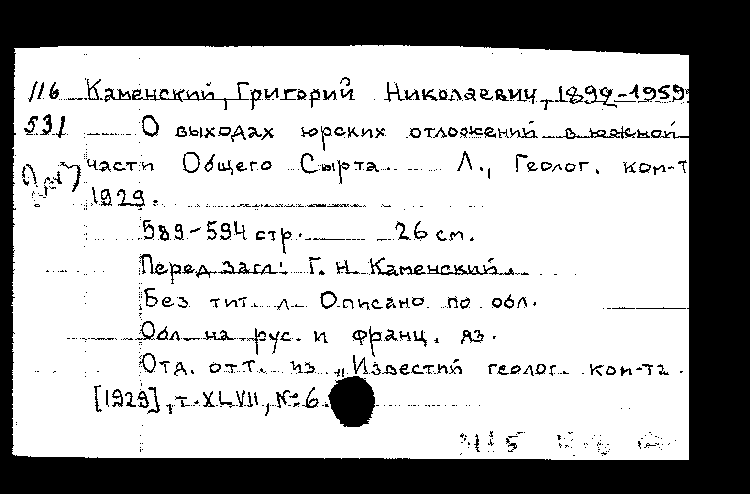 116 Каменский, Григорий Николаевич, 1892-1959
531 О выходах юрских отложений в южной
части Общего Сырта. Л., Геолог. ком-т
1929.
589-594 стр. 26 см.
Перед загл: Г. Н. Каменский.
Без тит. л. Описано по обл.
Обл. на рус. и франц. яз.
Отд. отт. из „Известий геолог. ком-та.
[1929], т. XLVII, № 6.